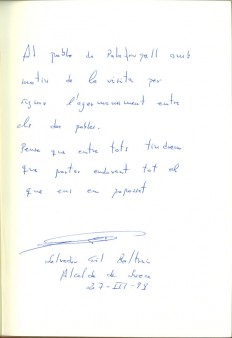 Al poble de Palafrugell amb
motiu de la visita per
signar l'agermanament entre
els dos pobles.
Pense que entre tots tindrem
que portar endavant tot el
que ens em proposat
Salvador Gil
Alcalde de Sueca
27-III-98